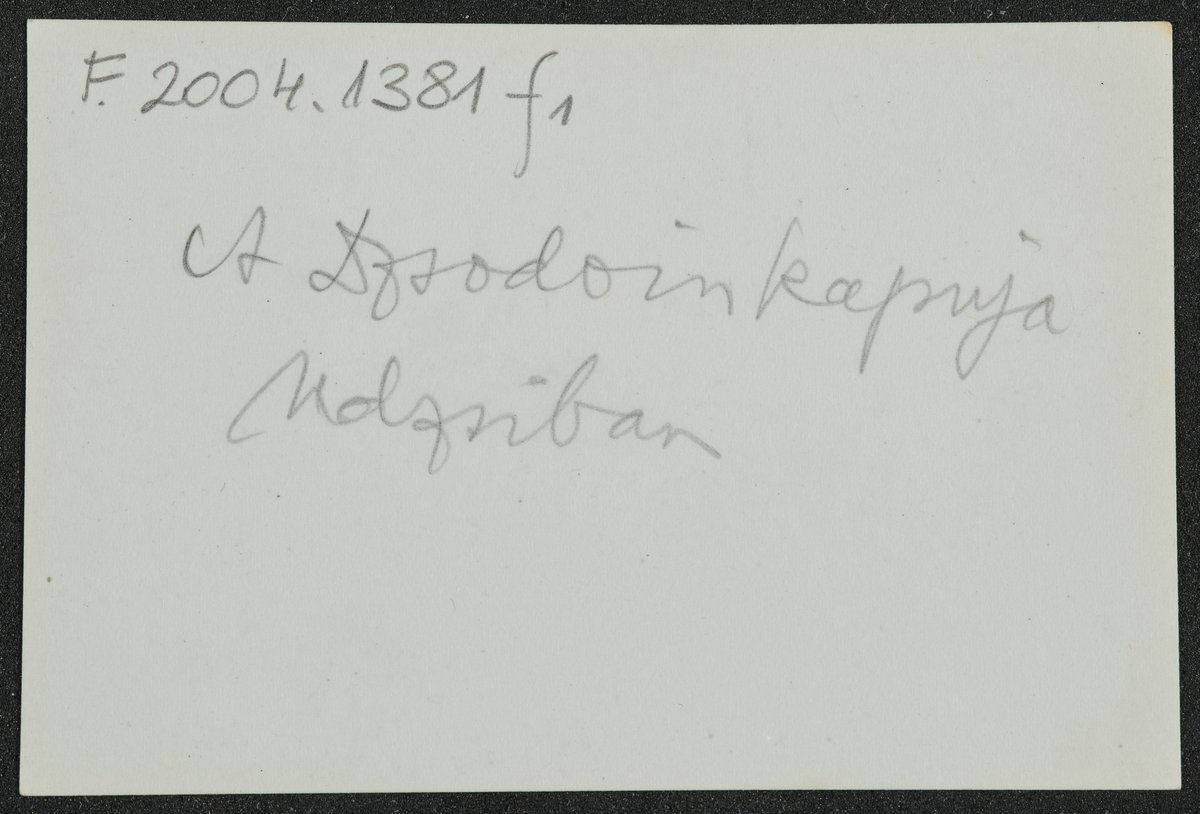 F. 2004.1381 f1
A Dzsodoin kapuja
Udzsiban